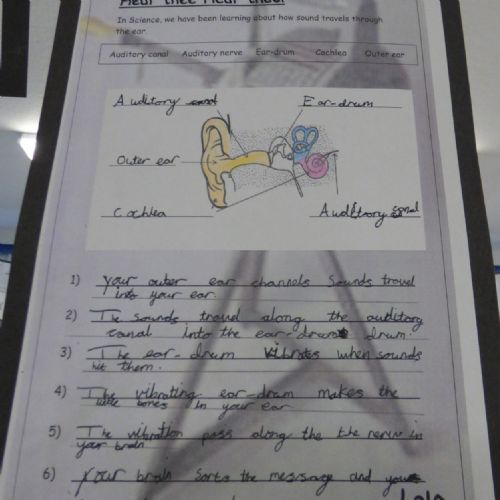 Hear thee Hear thee!
In Science, we have been learning about how sound travels through
the ear.
Auditory canal Auditory nerve Ear-drum Cochlea Outer ear
Auditory canal Ear-drum
Outer ear
Cochlea Auditory canal
1) Your outer ear channels Sounds travel
into your ear.
2) The sounds travel along the auditory
canal into the ear-drum drum.
3) The ear-drum vibrates when sounds
hit them.
4) The vibrating ear-drum makes the
little bones in your ear
5) The vibration pass along the the nerve in
your brain
6) Your brain sorts the message and